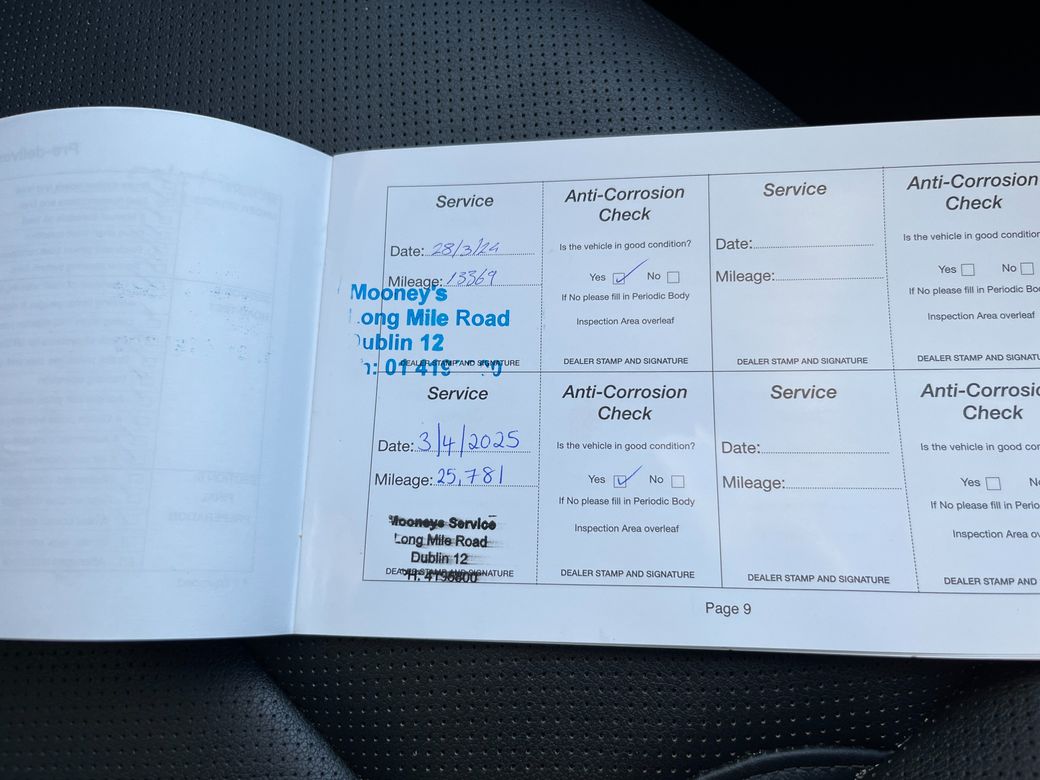 Service
Date: 28/3/24
Mileage: 13369
Mooney's
Long Mile Road
Dublin 12
Ph: 01 419
DEALER STAMP AND SIGNATURE
Anti-Corrosion
Check
Is the vehicle in good condition?
Yes No
If No please fill in Periodic Body
Inspection Area overleaf
DEALER STAMP AND SIGNATURE
Service
Date:
Mileage:
DEALER STAMP AND SIGNATURE
Anti-Corrosion
Check
Is the vehicle in good condition
Yes No
If No please fill in Periodic Bo
Inspection Area overleaf
DEALER STAMP AND SIGNATU
Service
Date: 3/4/2025
Mileage: 25,781
Mooneys Service
Long Mile Road
Dublin 12
DEALER STAMP AND SIGNATURE
PH: 4196800
Anti-Corrosion
Check
Is the vehicle in good condition?
Yes No
If No please fill in Periodic Body
Inspection Area overleaf
DEALER STAMP AND SIGNATURE
Service
Date:
Mileage:
DEALER STAMP AND SIGNATURE
Anti-Corrosio
Check
Is the vehicle in good con
Yes No
If No please fill in Perio
Inspection Area ov
DEALER STAMP AND
Page 9